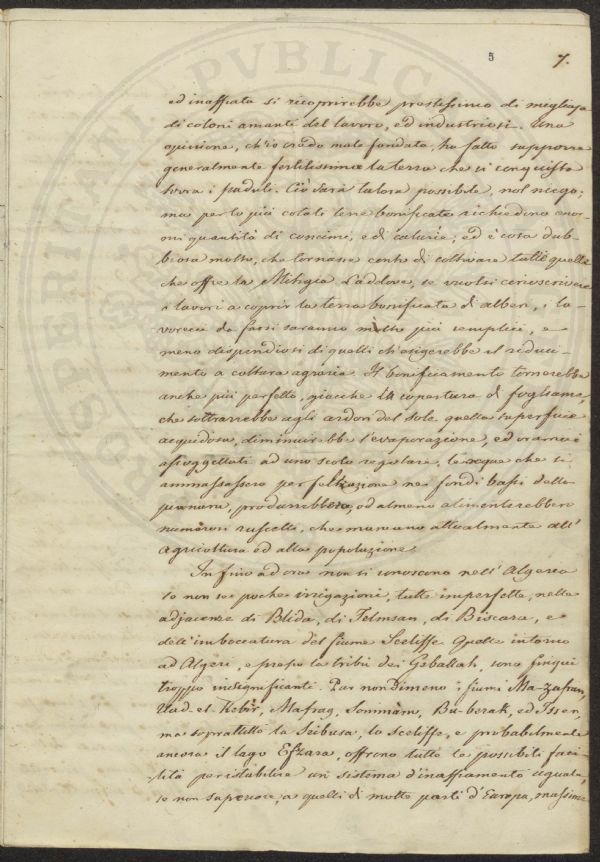 5 7.
ed inaffiata si ricoprirebbe prestissimo di migliaja
di coloni amanti del lavoro, ed industriosi. Una
opinione, ch'io credo male fondata, ha fatto supporre
generalmente fertilissima la terra che si conquista
sovra i paduli. Ciò sarà talora possibile, nol niego;
ma per lo più cotali terre bonificate richiedono enor-
mi quantità di concimi, e di calurie; ed è cosa dub-
biosa molto, che tornasse conto di coltivare tutte quelle
che offre la Mitigia. Laddove, se vuolsi circoscrivere
i lavori a coprir la terra bonificata di alberi, i la-
vorecci da farsi saranno molto più semplici, e
meno dispendiosi di quelli ch'esigerebbe il riduci-
mento a coltura agraria. Il bonificamento tornerebbe
anche più perfetto, giacchè la copertura di fogliame,
che sottrarrebbe agli ardori del sole quella superficie
acquidosa, diminuirebbe l'evaporazione, ed ove
assoggettati ad uno scolo regolare, le acque che si
ammassassero per feltrazione nei fondi bassi della
pianura, produrrebbero, od almeno alimenterebbero
numerosi ruscelli, che mancano attualmente all'
agricoltura ed alla popolazione.
In fino ad ora non si conoscono nell'Algeria
se non se poche irrigazioni, tutte imperfette, nelle
adjacenze di Blida, di Telmsan, di Biscara, e
dell'imboccatura del fiume Sceliffe. Quelle intorno
ad Algeri, e presso la tribù dei Geballah, sono
troppo insignificanti. Par nondimeno i fiumi Ma-zafran,
Uad-el-Kebir, Mafrag, Sommàm, Bu-berak, ed Isser,
ma soprattutto la Seibusa, lo Sceliffe, e probabilmente
ancora il lago Efzara, offrono tutte le possibili faci-
lità per istabilire un sistema d'inaffiamento uguale,
se non superiore, a quelli di molte parti d'Europa, massime